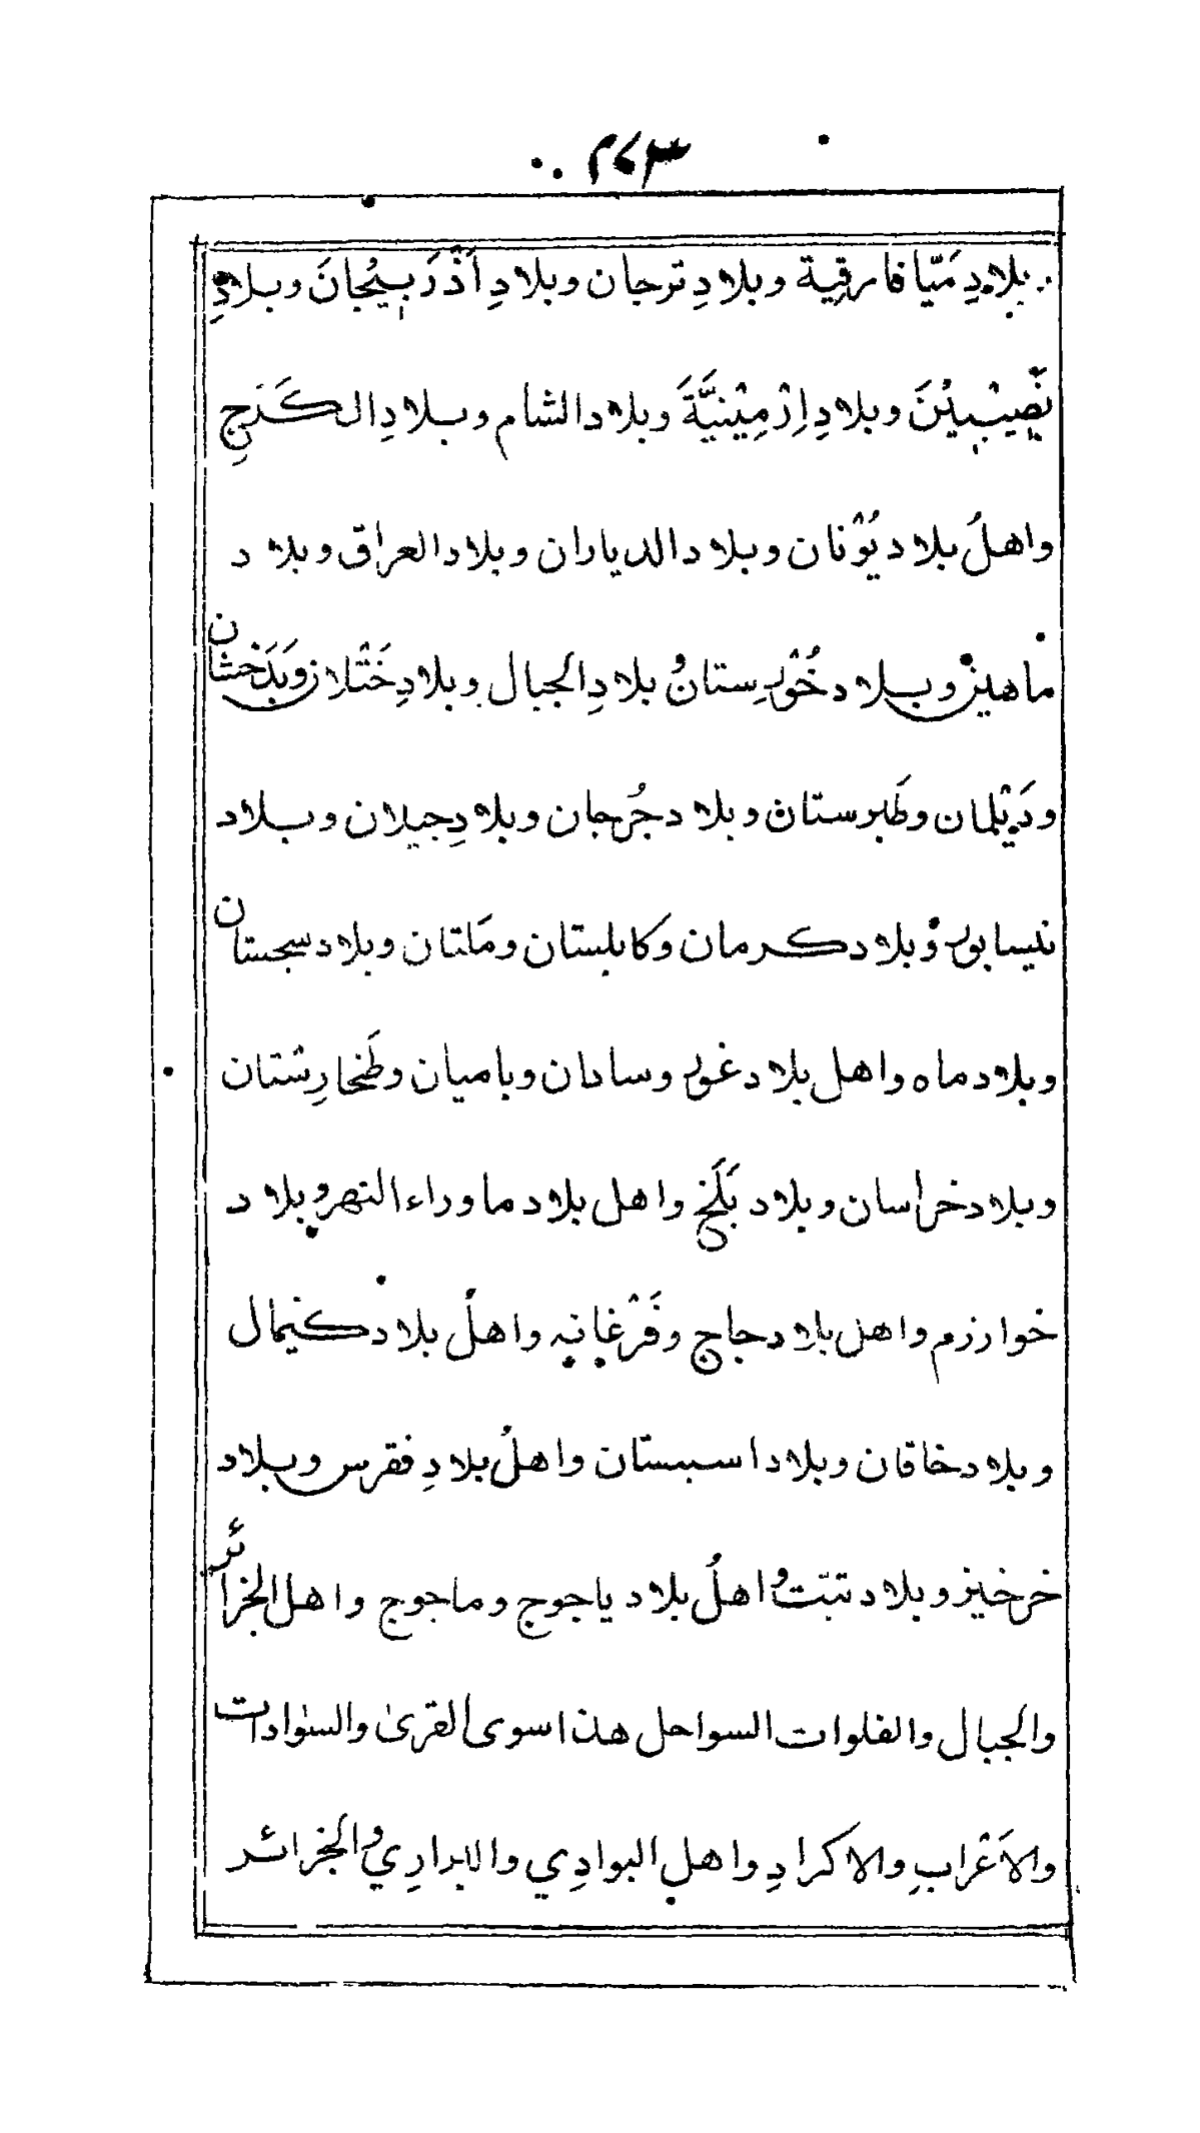 ٢٧٣
بلادِ مَيّا فارقية وبلادِ ترجان وبلادِ اَذْرَبيْجانَ وبلادِ
نَصِيْبِيْنَ وبلادِ اِرْمِيْنِيَّةَ وبلاد الشام وبلادِ الكَرَجِ
واهلُ بلاد يُوْنان وبلاد الدياران وبلاد العراق وبلاد
ماهين وبلاد خُوْرِستان وُ بلادِ الجبال وبلادِ خَتْلان وبَدَخشان
ودَيْلمان وطَبرستان وبلاد جُرجان وبلادِ جيلان وبلاد
نيسابور وبلاد كرمان وكابلستان ومَلتان وبلاد سجستان
وبلاد ماه واهل بلاد غور وسادان وباميان وطَخارِستان
وبلاد خراسان وبلاد بَلَخ واهل بلاد ما وراء النهر وبلاد
خوارزم واهل بلاد جاج وفَرْغانه واهلُ بلاد كنيمال
وبلاد خاقان وبلاد اسبستان واهلُ بلادِ فقرس وبلاد
خرخيز وبلاد تبّت وُاهلُ بلاد ياجوج وماجوج واهل الخزائر
والجبال والفلوات السواحل هذا سوى القرىٰ والسوادات
والاَعْرابِ والاكرادِ واهلِ البوادِي والبرارِي والخزائر